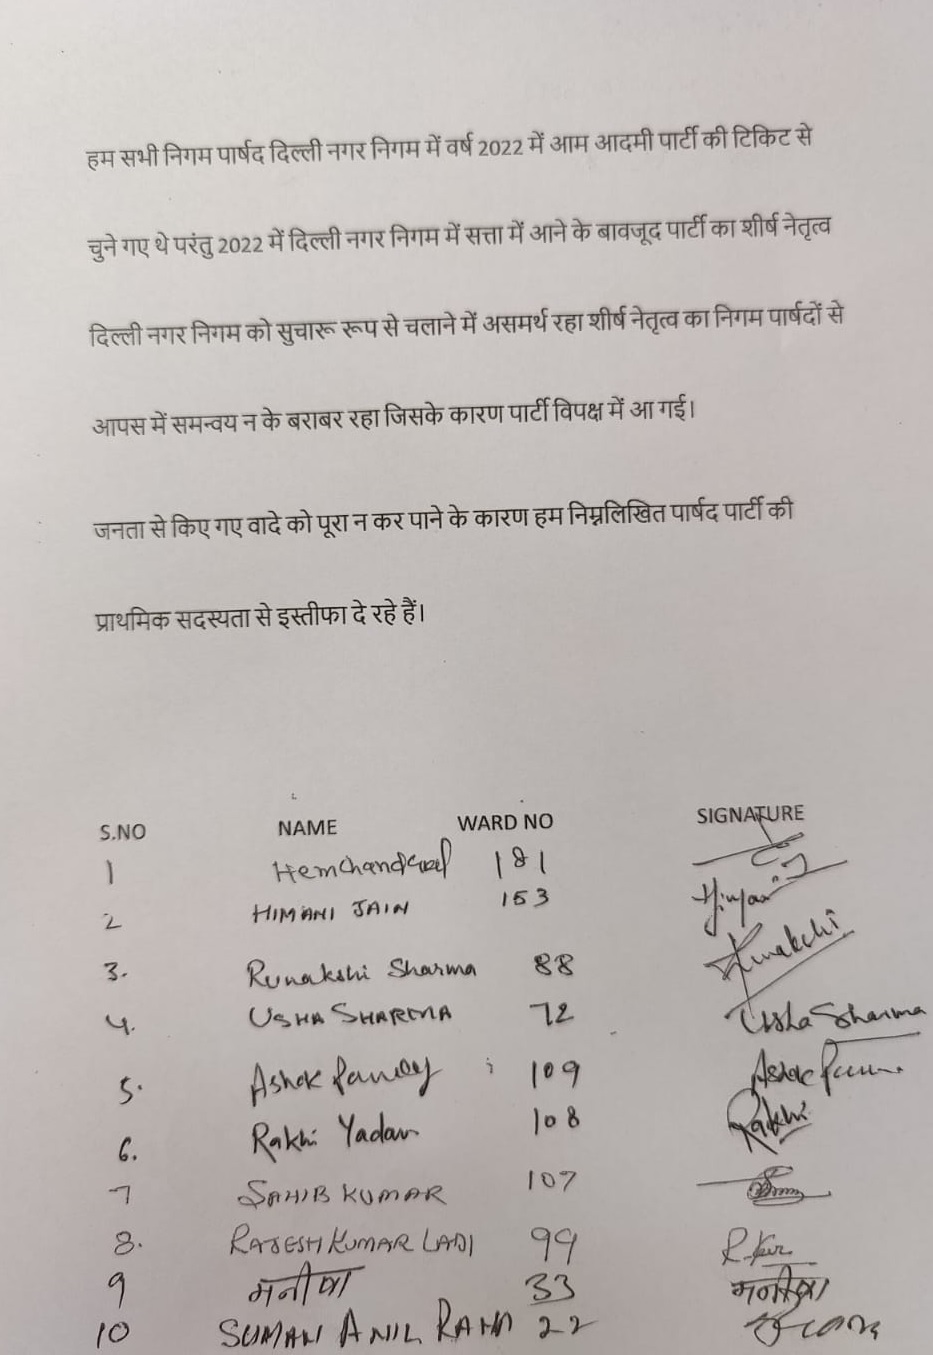 हम सभी निगम पार्षद दिल्ली नगर निगम में वर्ष 2022 में आम आदमी पार्टी की टिकिट से
चुने गए थे परंतु 2022 में दिल्ली नगर निगम में सत्ता में आने के बावजूद पार्टी का शीर्ष नेतृत्व
दिल्ली नगर निगम को सुचारू रूप से चलाने में असमर्थ रहा शीर्ष नेतृत्व का निगम पार्षदों से
आपस में समन्वय न के बराबर रहा जिसके कारण पार्टी विपक्ष में आ गई।
जनता से किए गए वादे को पूरा न कर पाने के कारण हम निम्नलिखित पार्षद पार्टी की
प्राथमिक सदस्यता से इस्तीफा दे रहे हैं।
S.NO NAME WARD NO SIGNATURE
1 Hemchand Goel 181
2 HIMANI JAIN 153
3. Runakshi Sharma 88 Runakchi
4. USHA SHARMA 72 Usha Sharma
5. Ashok Pandey 109 Ashok
6. Rakhi Yadav 108 Rakhi
7 SAHIB KUMAR 107
8. RAJESH KUMAR LADI 99
9 मनीषा 33 मनीषा
10 SUMAN ANIL RANA 22